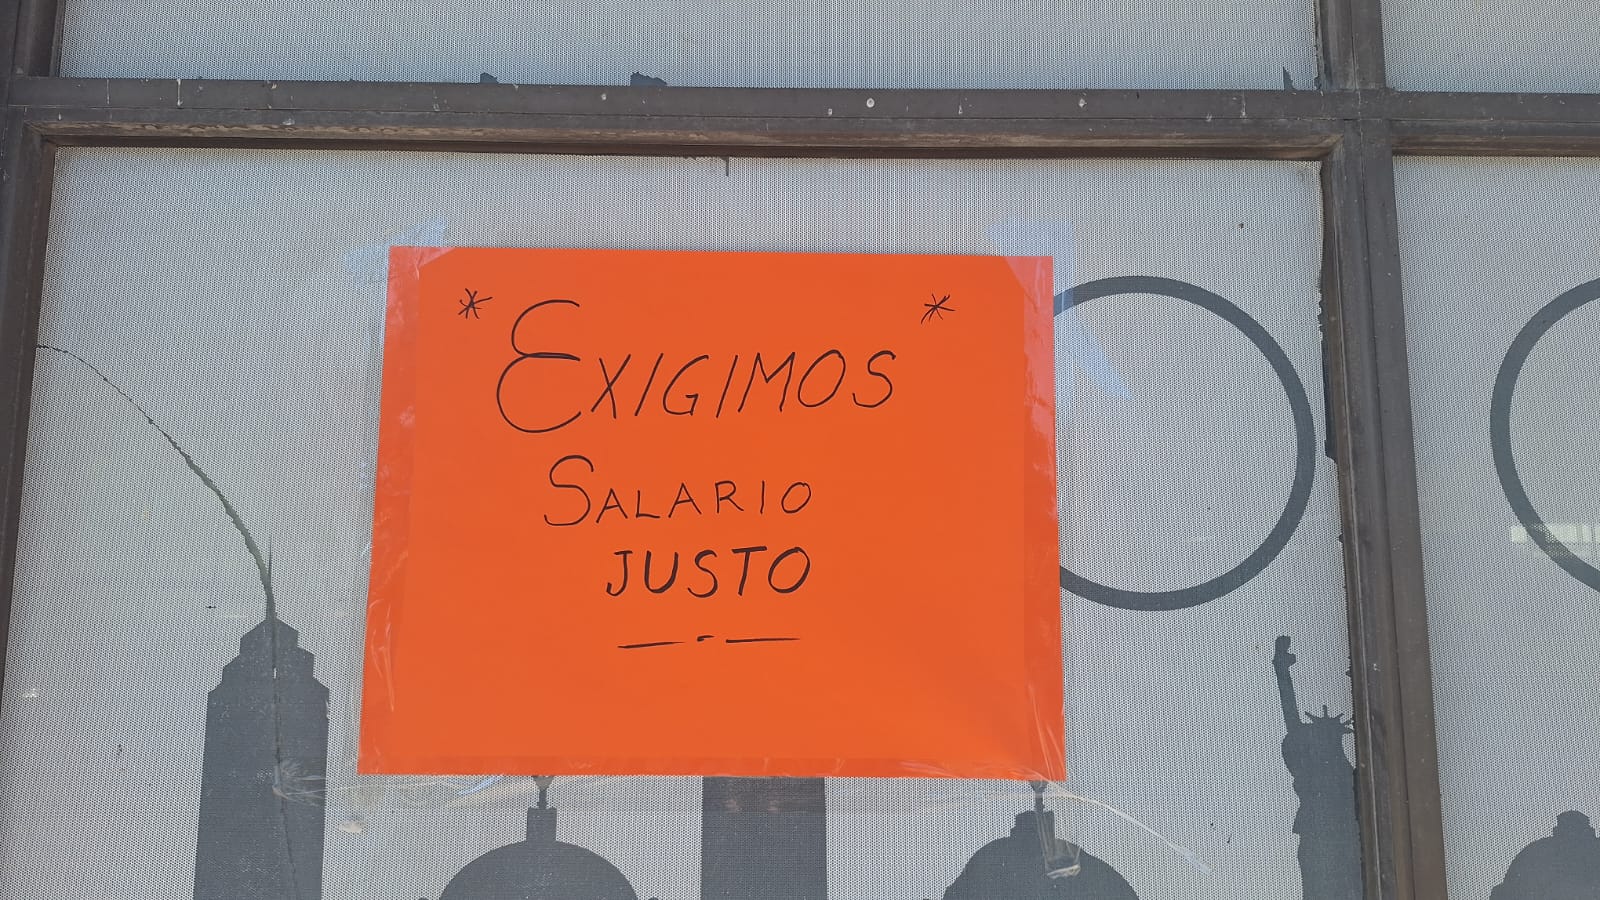 * EXIGIMOS *
SALARIO
JUSTO